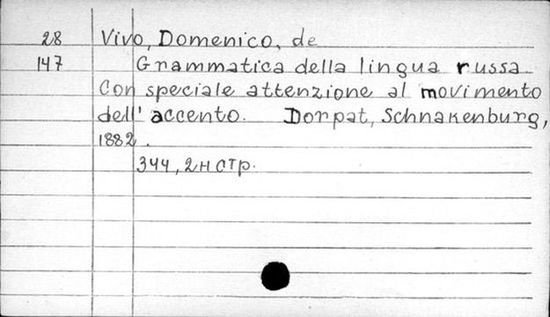 28 Vivo, Domenico, de
147 Grammatica della lingua russa
Con speciale attenzione al movimento
dell' accento. Dorpat, Schnakenburg,
1882.
344, 2н стр.